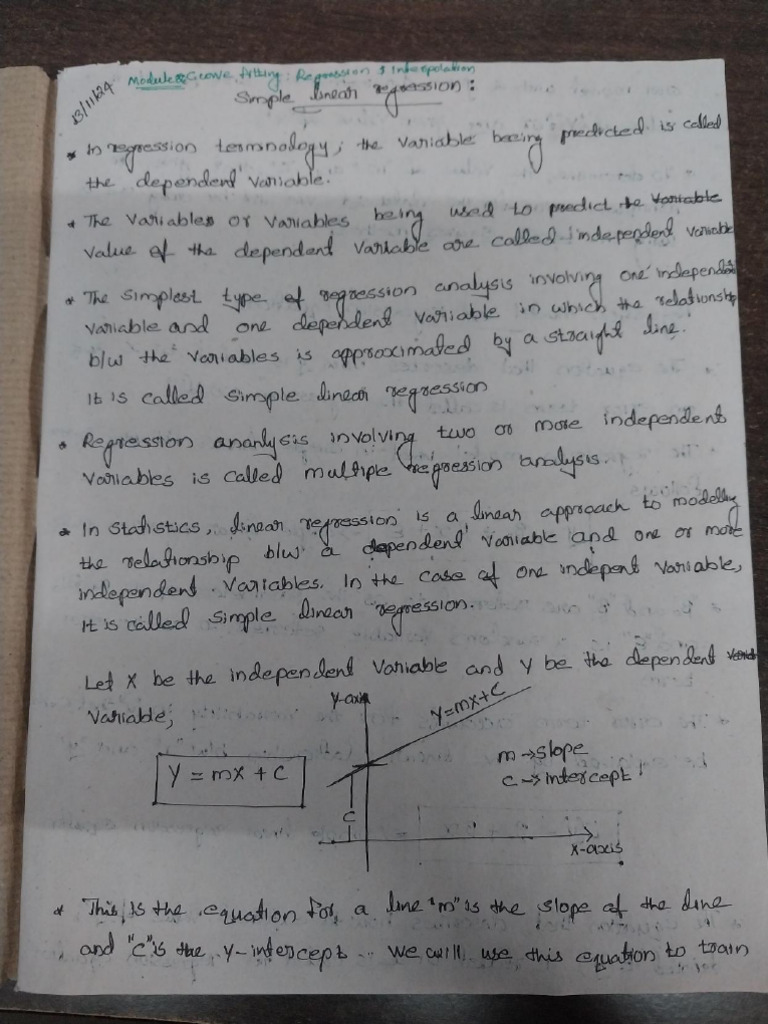 Module Curve fitting: Regression & Interpolation
13/11/24
Simple linear regression:
* In regression termnology, the variable beeing predicted is called
the dependent variable.
* The variables or variables being used to predict the variable
value of the dependent variable are called independent variable
* The simplest type of regression analysis involving one independent
variable and one dependent variable in which the relationship
b/w the variables is approximated by a straight line.
It is called simple linear regression
* Regression ananlysis involving two or more independent
variables is called multiple regression analysis.
* In statistics, linear regression is a linear approach to modelling
the relationship b/w a dependent variable and one or more
independent variables. In the case of one indepent variable,
it is called simple linear regression.
Let X be the independent variable and Y be the dependent
variable,
Y-axis
Y=mx+c
m → slope
Y = mx + c
c → intercept
c
x-axis
* This is the equation for a line "m" is the slope of the line
and "c" is the y-intercept. we will use this equation to train